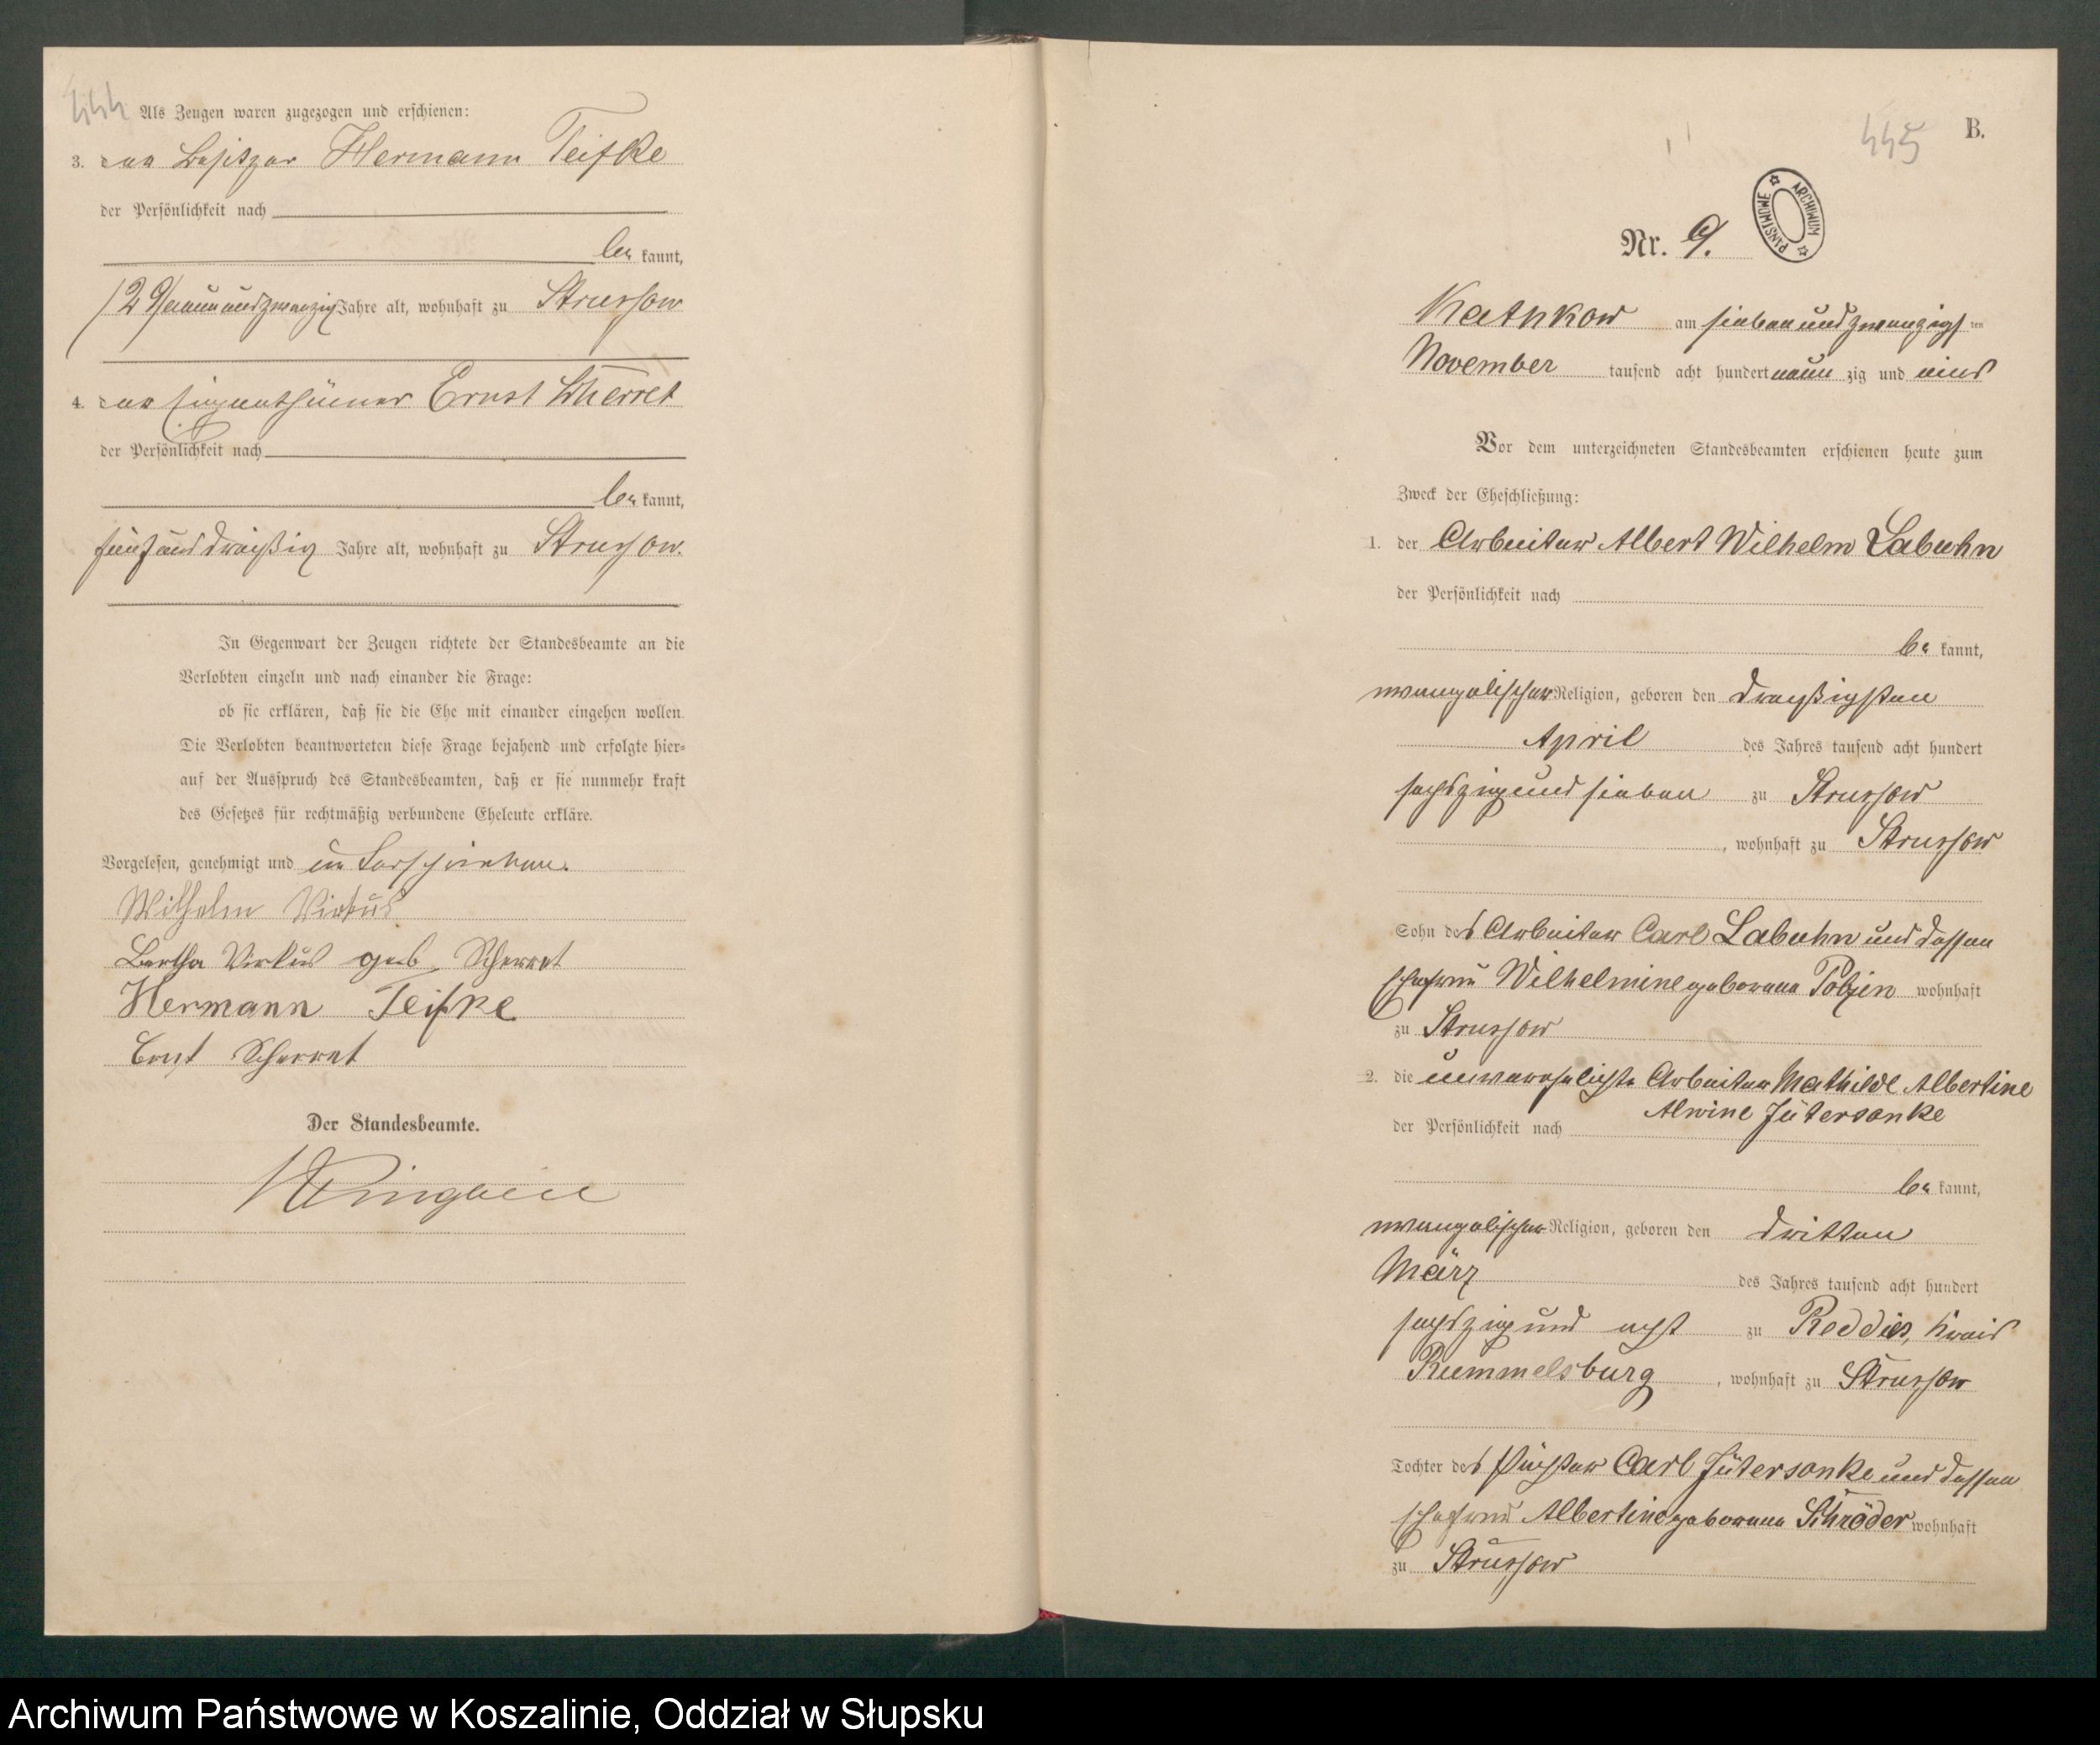 444
Als Zeugen waren zugezogen und erschienen:
3. der Besitzer Hermann Teifke
der Persönlichkeit nach
be kannt,
(29) neunundzwanzig Jahre alt, wohnhaft zu Strussow
4. der Eigenthümer Ernst Scherret
der Persönlichkeit nach
be kannt,
fünfunddreißig Jahre alt, wohnhaft zu Strussow.
In Gegenwart der Zeugen richtete der Standesbeamte an die
Verlobten einzeln und nach einander die Frage:
ob sie erklären, daß sie die Ehe mit einander eingehen wollen.
Die Verlobten beantworteten diese Frage bejahend und erfolgte hier=
auf der Ausspruch des Standesbeamten, daß er sie nunmehr kraft
des Gesetzes für rechtmäßig verbundene Eheleute erkläre.
Vorgelesen, genehmigt und unterschrieben.
Wilhelm Virkus
Bertha Virkus geb. Scherret
Hermann Teifke
Ernst Scherret
Der Standesbeamte.
445
B.
ARCHIWUM PAŃSTWOWE
Nr. 9.
Kathkow am siebenundzwanzigs ten
November tausend acht hundert neun zig und eins
Vor dem unterzeichneten Standesbeamten erschienen heute zum
Zweck der Eheschließung:
1. der Arbeiter Albert Wilhelm Labuhn
der Persönlichkeit nach
be kannt,
evangelischer Religion, geboren den dreißigsten
April des Jahres tausend acht hundert
sechszig und sieben zu Strussow
, wohnhaft zu Strussow
Sohn des Arbeiter Carl Labuhn und dessen
Ehefrau Wilhelmine geborene Polzin wohnhaft
zu Strussow
2. die unverehelichte Arbeiter Mathilde Albertine
Alwine Jütersonke
der Persönlichkeit nach
be kannt,
evangelischer Religion, geboren den dritten
März des Jahres tausend acht hundert
sechszig und acht zu Reddies, Kreis
Rummelsburg, wohnhaft zu Strussow
Tochter des Carl Jütersonke und dessen
Ehefrau Albertine geborene Schröder wohnhaft
zu Strussow
Archiwum Państwowe w Koszalinie, Oddział w Słupsku